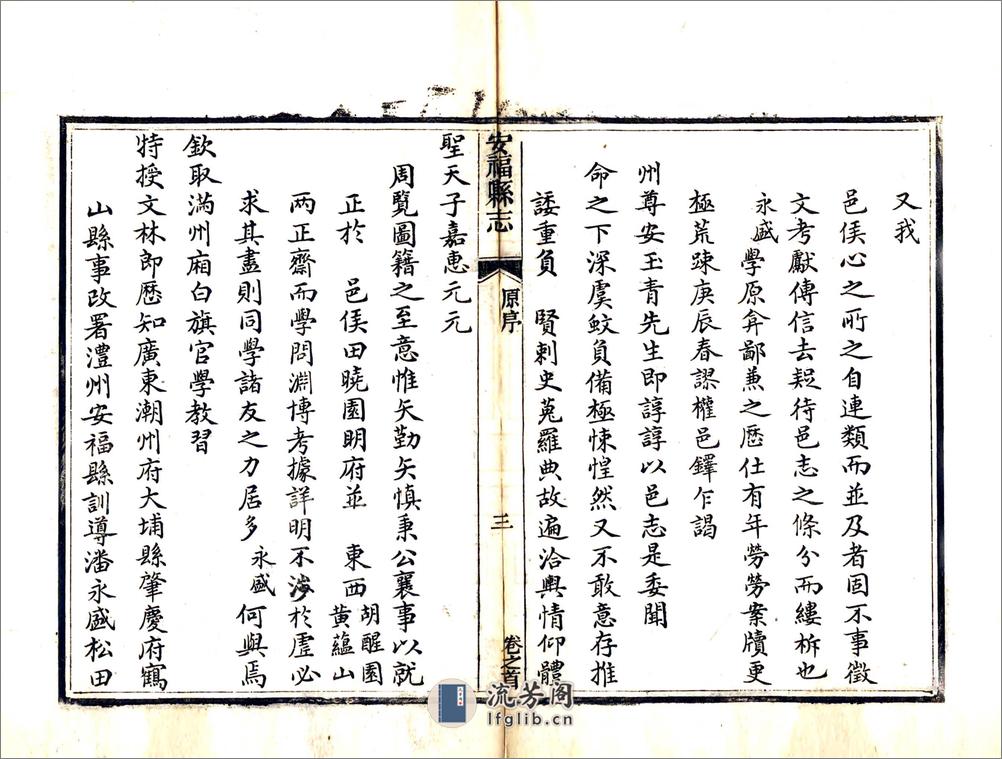 又我
邑侯心之所之自連類而並及者固不事徵
文考獻傳信去疑待邑志之條分而縷析也
永盛學原弇鄙兼之歷仕有年勞勞案牘更
極荒踈庚辰春謬權邑鐸乍謁
州尊安玉青先生即諄諄以邑志是委聞
命之下深虞蚊負備極悚惶然又不敢意存推
諉重負 賢剌史蒐羅典故遍洽輿情仰體
安福縣志 原序 三 卷之首
聖天子嘉惠元元
周覽圖籍之至意惟矢勤矢慎秉公襄事以就
正於 邑侯田曉園明府並 東西胡醒園黃蘊山
两正齋而學問淵博考據詳明不渉於虛必
求其盡則同學諸友之力居多永盛何與焉
欽取滿州廂白旗官學教習
特授文林郎歷知廣東潮州府大埔縣肇慶府鶴
山縣事改署澧州安福縣訓導潘永盛松田
流芳閣
lfglib.cn